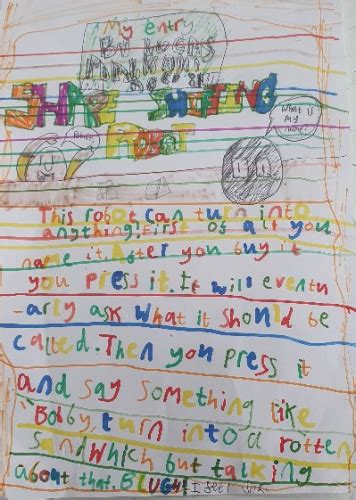 My entry
By
SHAPE SHIFTING
ROBOT
WHAT IS MY NAME?
This robot can turn into
anything! First of all you
name it. After you buy it
you press it. It will eventu
-arly ask what it should be
called. Then you press it
and say something like
"Bobby, turn into a rotten
sandwhich but talking
about that. BLUGH! I feel